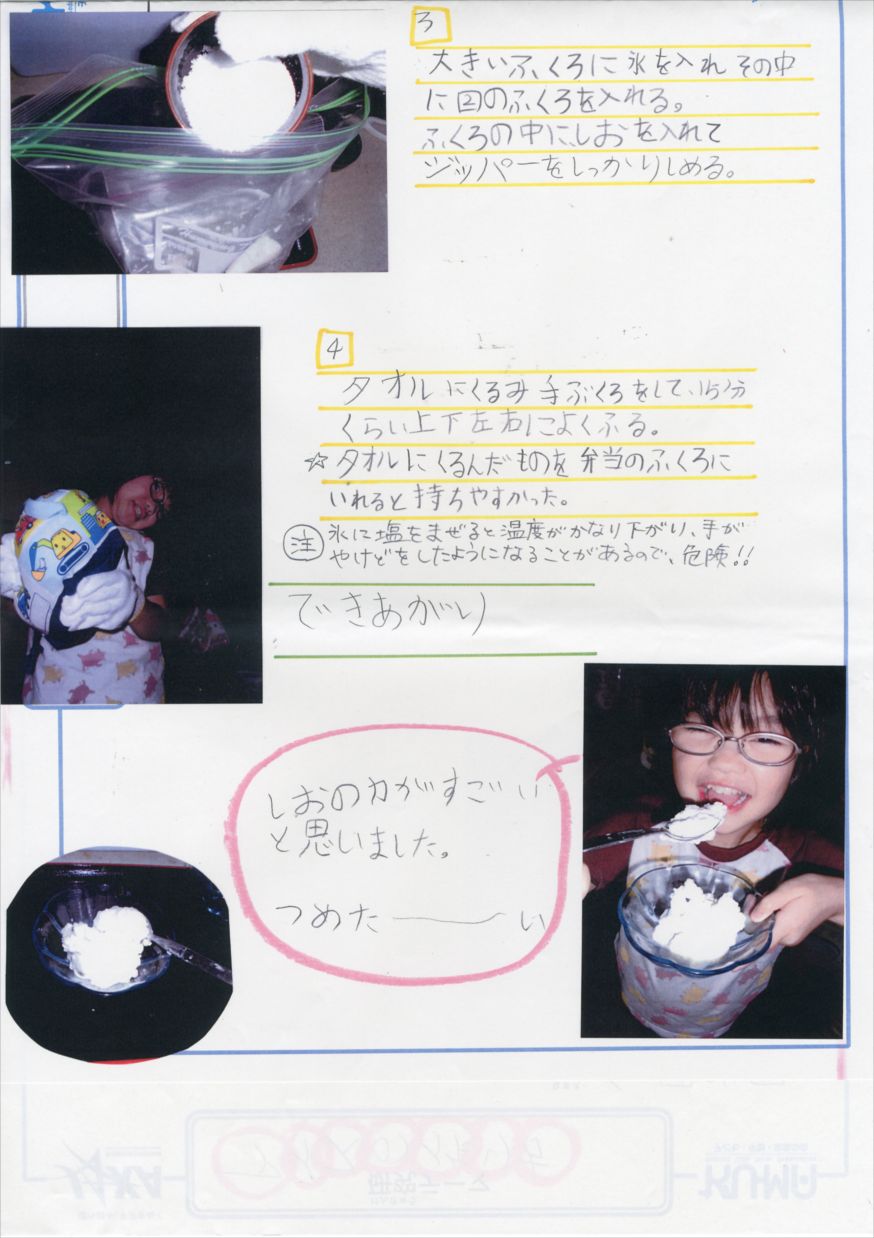 3
大きいふくろに氷を入れその中
に②のふくろを入れる。
ふくろの中にしおを入れて
ジッパーをしっかりしめる。
4
タオルにくるみ手ぶくろをして、15分
くらい上下左右によくふる。
☆タオルにくるんだものを弁当のふくろに
いれると持ちやすかった。
注 氷に塩をまぜると温度がかなり下がり、手が
やけどをしたようになることがあるので、危険!!
できあがり
しおの力がすごい
と思いました。
つめたーーい